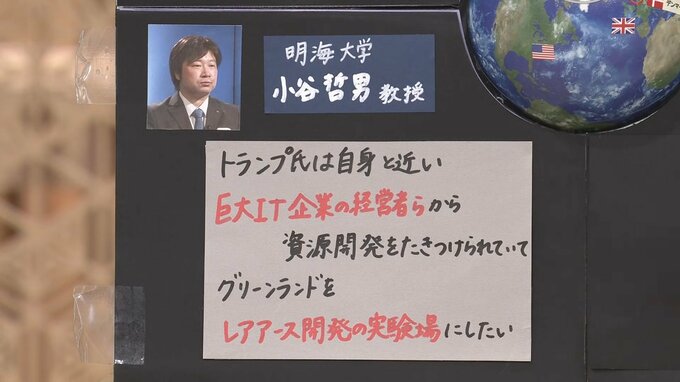 明海大学
小谷哲男 教授
トランプ氏は自身と近い
巨大IT企業の経営者らから
資源開発をたきつけられていて
グリーンランドを
レアアース開発の実験場にしたい